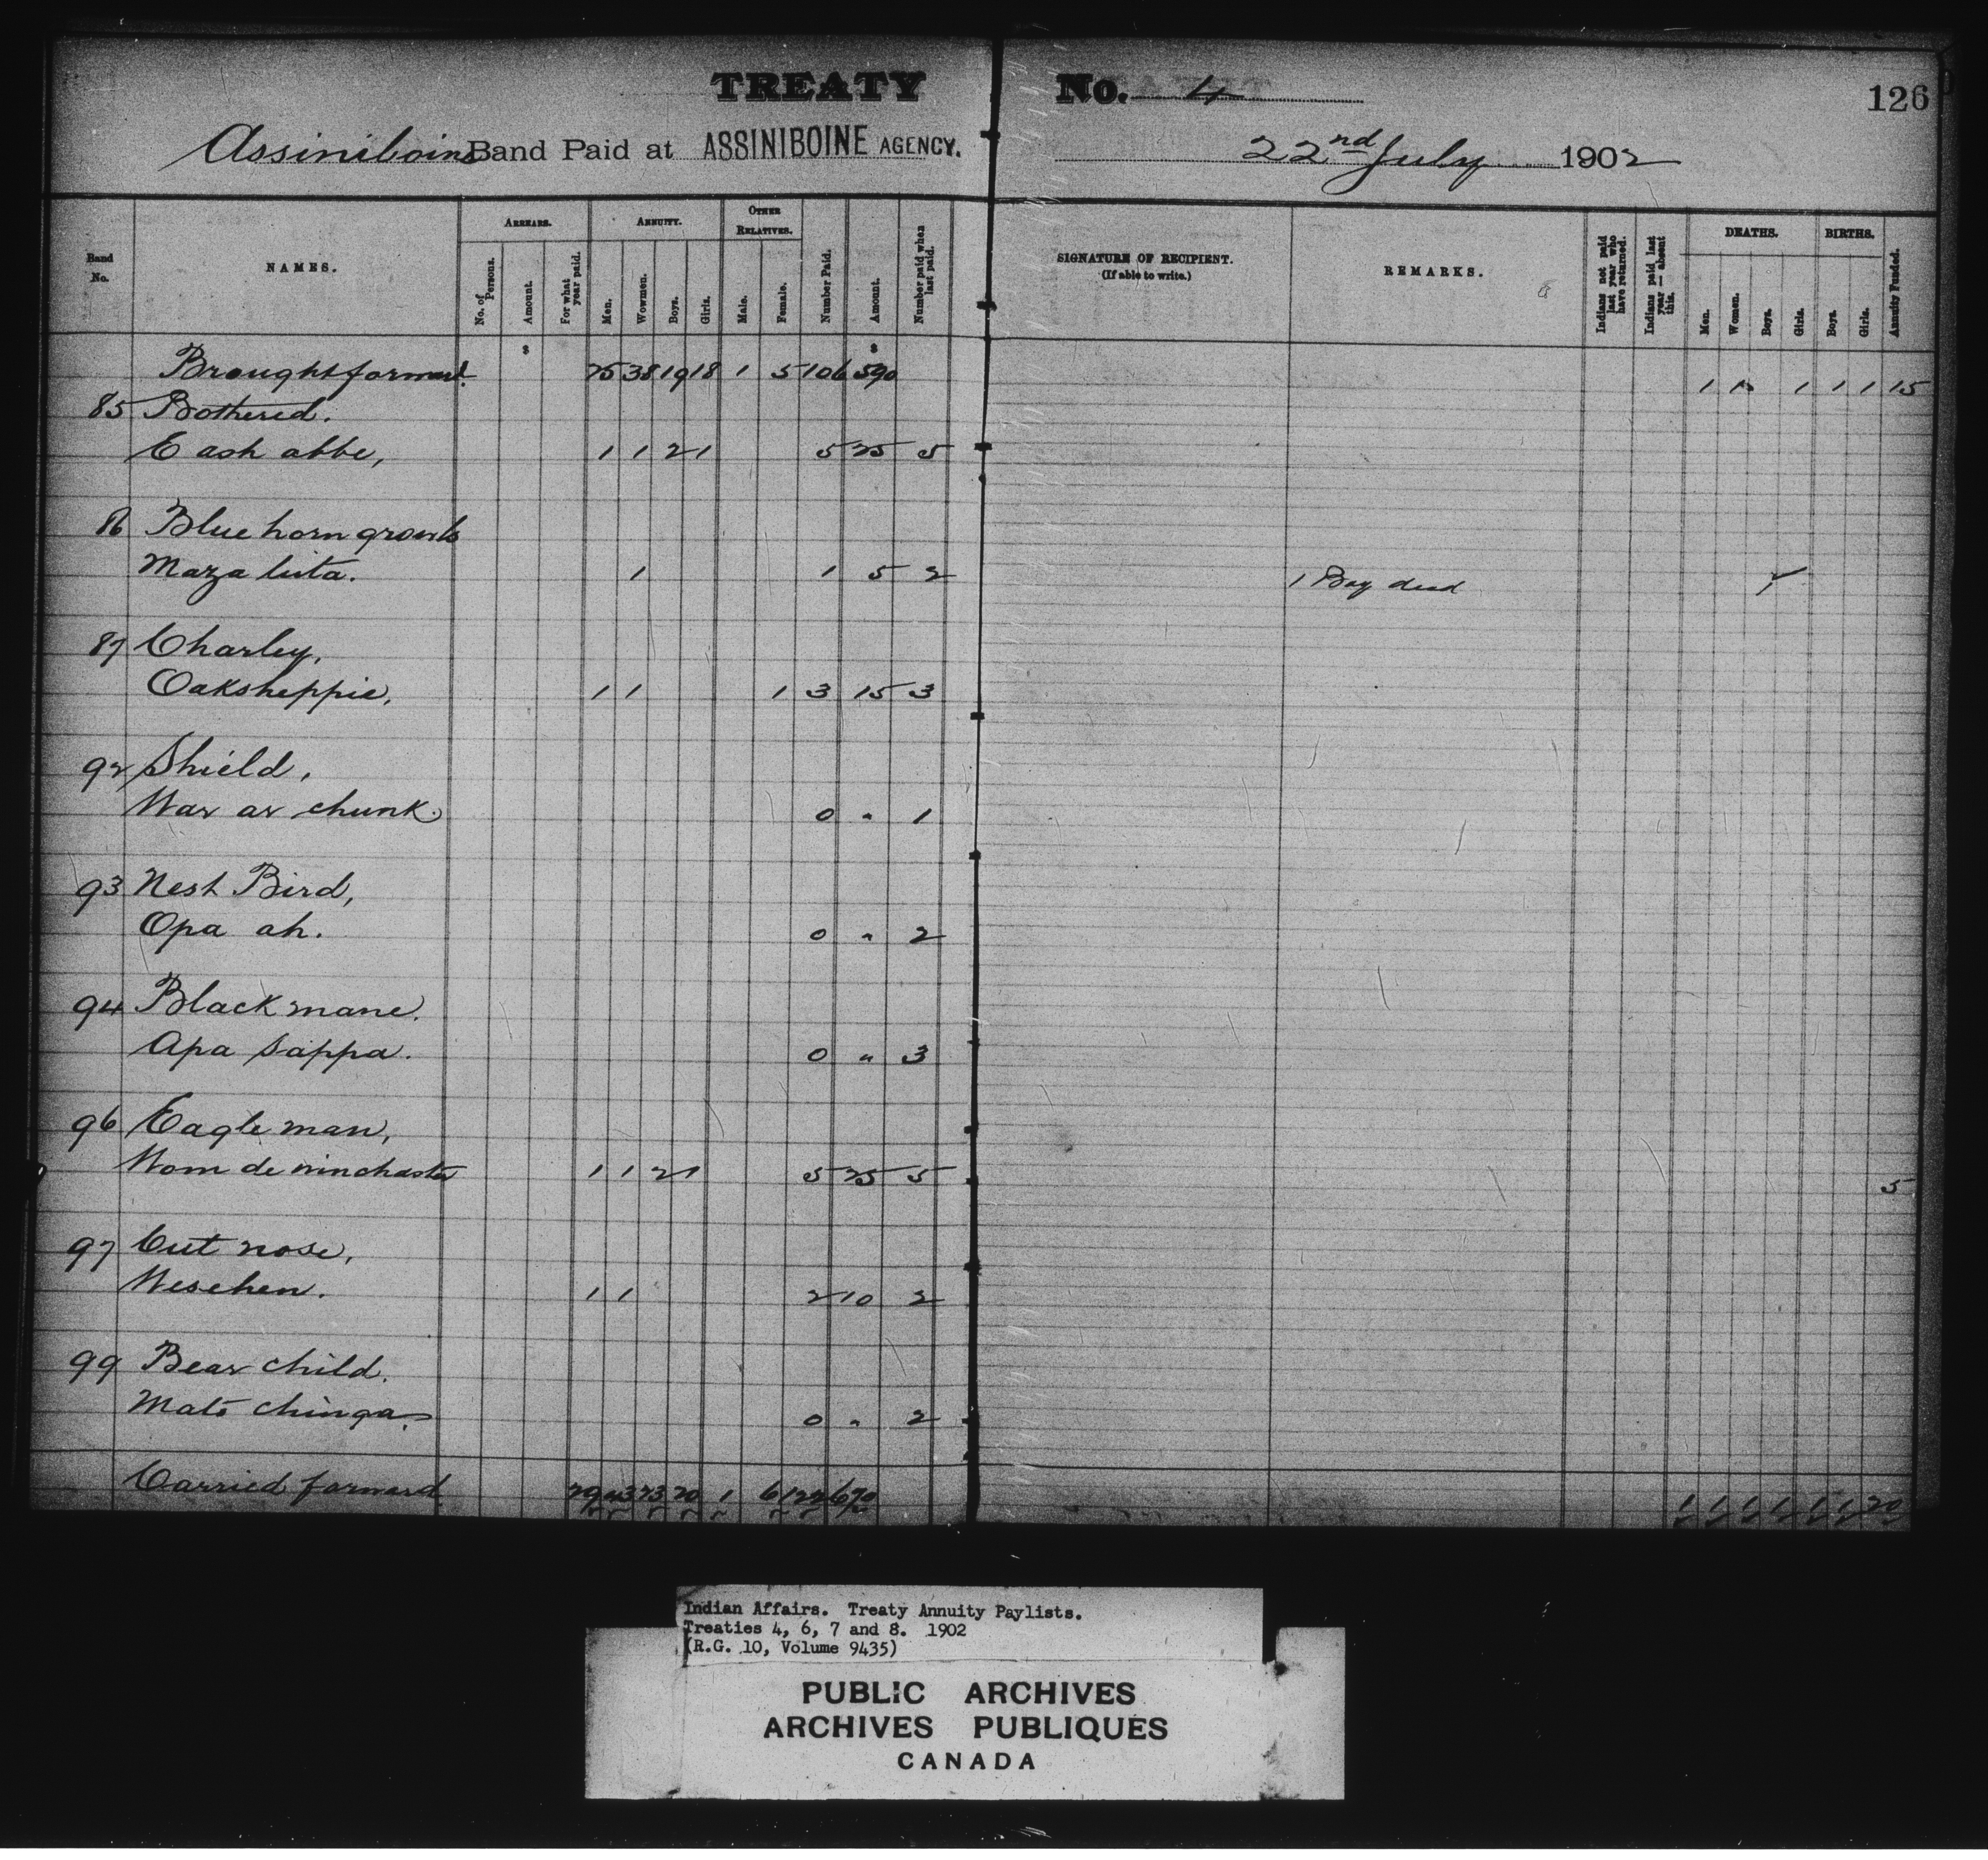 TREATY No. 4 126
Assiniboine Band Paid at ASSINIBOINE AGENCY. 22nd July 1902
Band No.
NAMES.
ARREARS.
No. of Persons.
Amount.
For what year paid.
ANNUITY.
Men.
Wowmen.
Boys.
Girls.
OTHER RELATIVES.
Male.
Female.
Number Paid.
Amount.
Number paid when last paid.
SIGNATURE OF RECIPIENT.
(If able to write.)
REMARKS.
Indians not paid last year who have returned.
Indians paid last year — absent this.
DEATHS.
Men.
Women.
Boys.
Girls.
BIRTHS.
Boys.
Girls.
Annuity Funded.
$ $
Brought forward. 25 38 19 18 1 5 106 590 1 1 1 1 1 15
85 Bothered.
E ash abbe, 1 1 2 1 5 25 5
86 Blue horn growls
Maza luta. 1 1 5 2 1 Boy dead 1
87 Charley,
Oaksheppie, 1 1 1 3 15 3
92 Shield,
War ar chunk. 0 " 1
93 Nest Bird,
Opa ah. 0 " 2
94 Black mane.
Apa sappa. 0 " 3
96 Eagle man,
Wom de winchasta 1 1 2 1 5 25 5 5
97 Cut nose,
Weschen. 1 1 2 10 2
99 Bear child.
Mato chinga. 0 " 2
Carried forward. 29 43 23 20 1 6 122 670 1 1 1 1 1 1 20
Indian Affairs. Treaty Annuity Paylists.
Treaties 4, 6, 7 and 8. 1902
(R.G. 10, Volume 9435)
PUBLIC ARCHIVES
ARCHIVES PUBLIQUES
CANADA